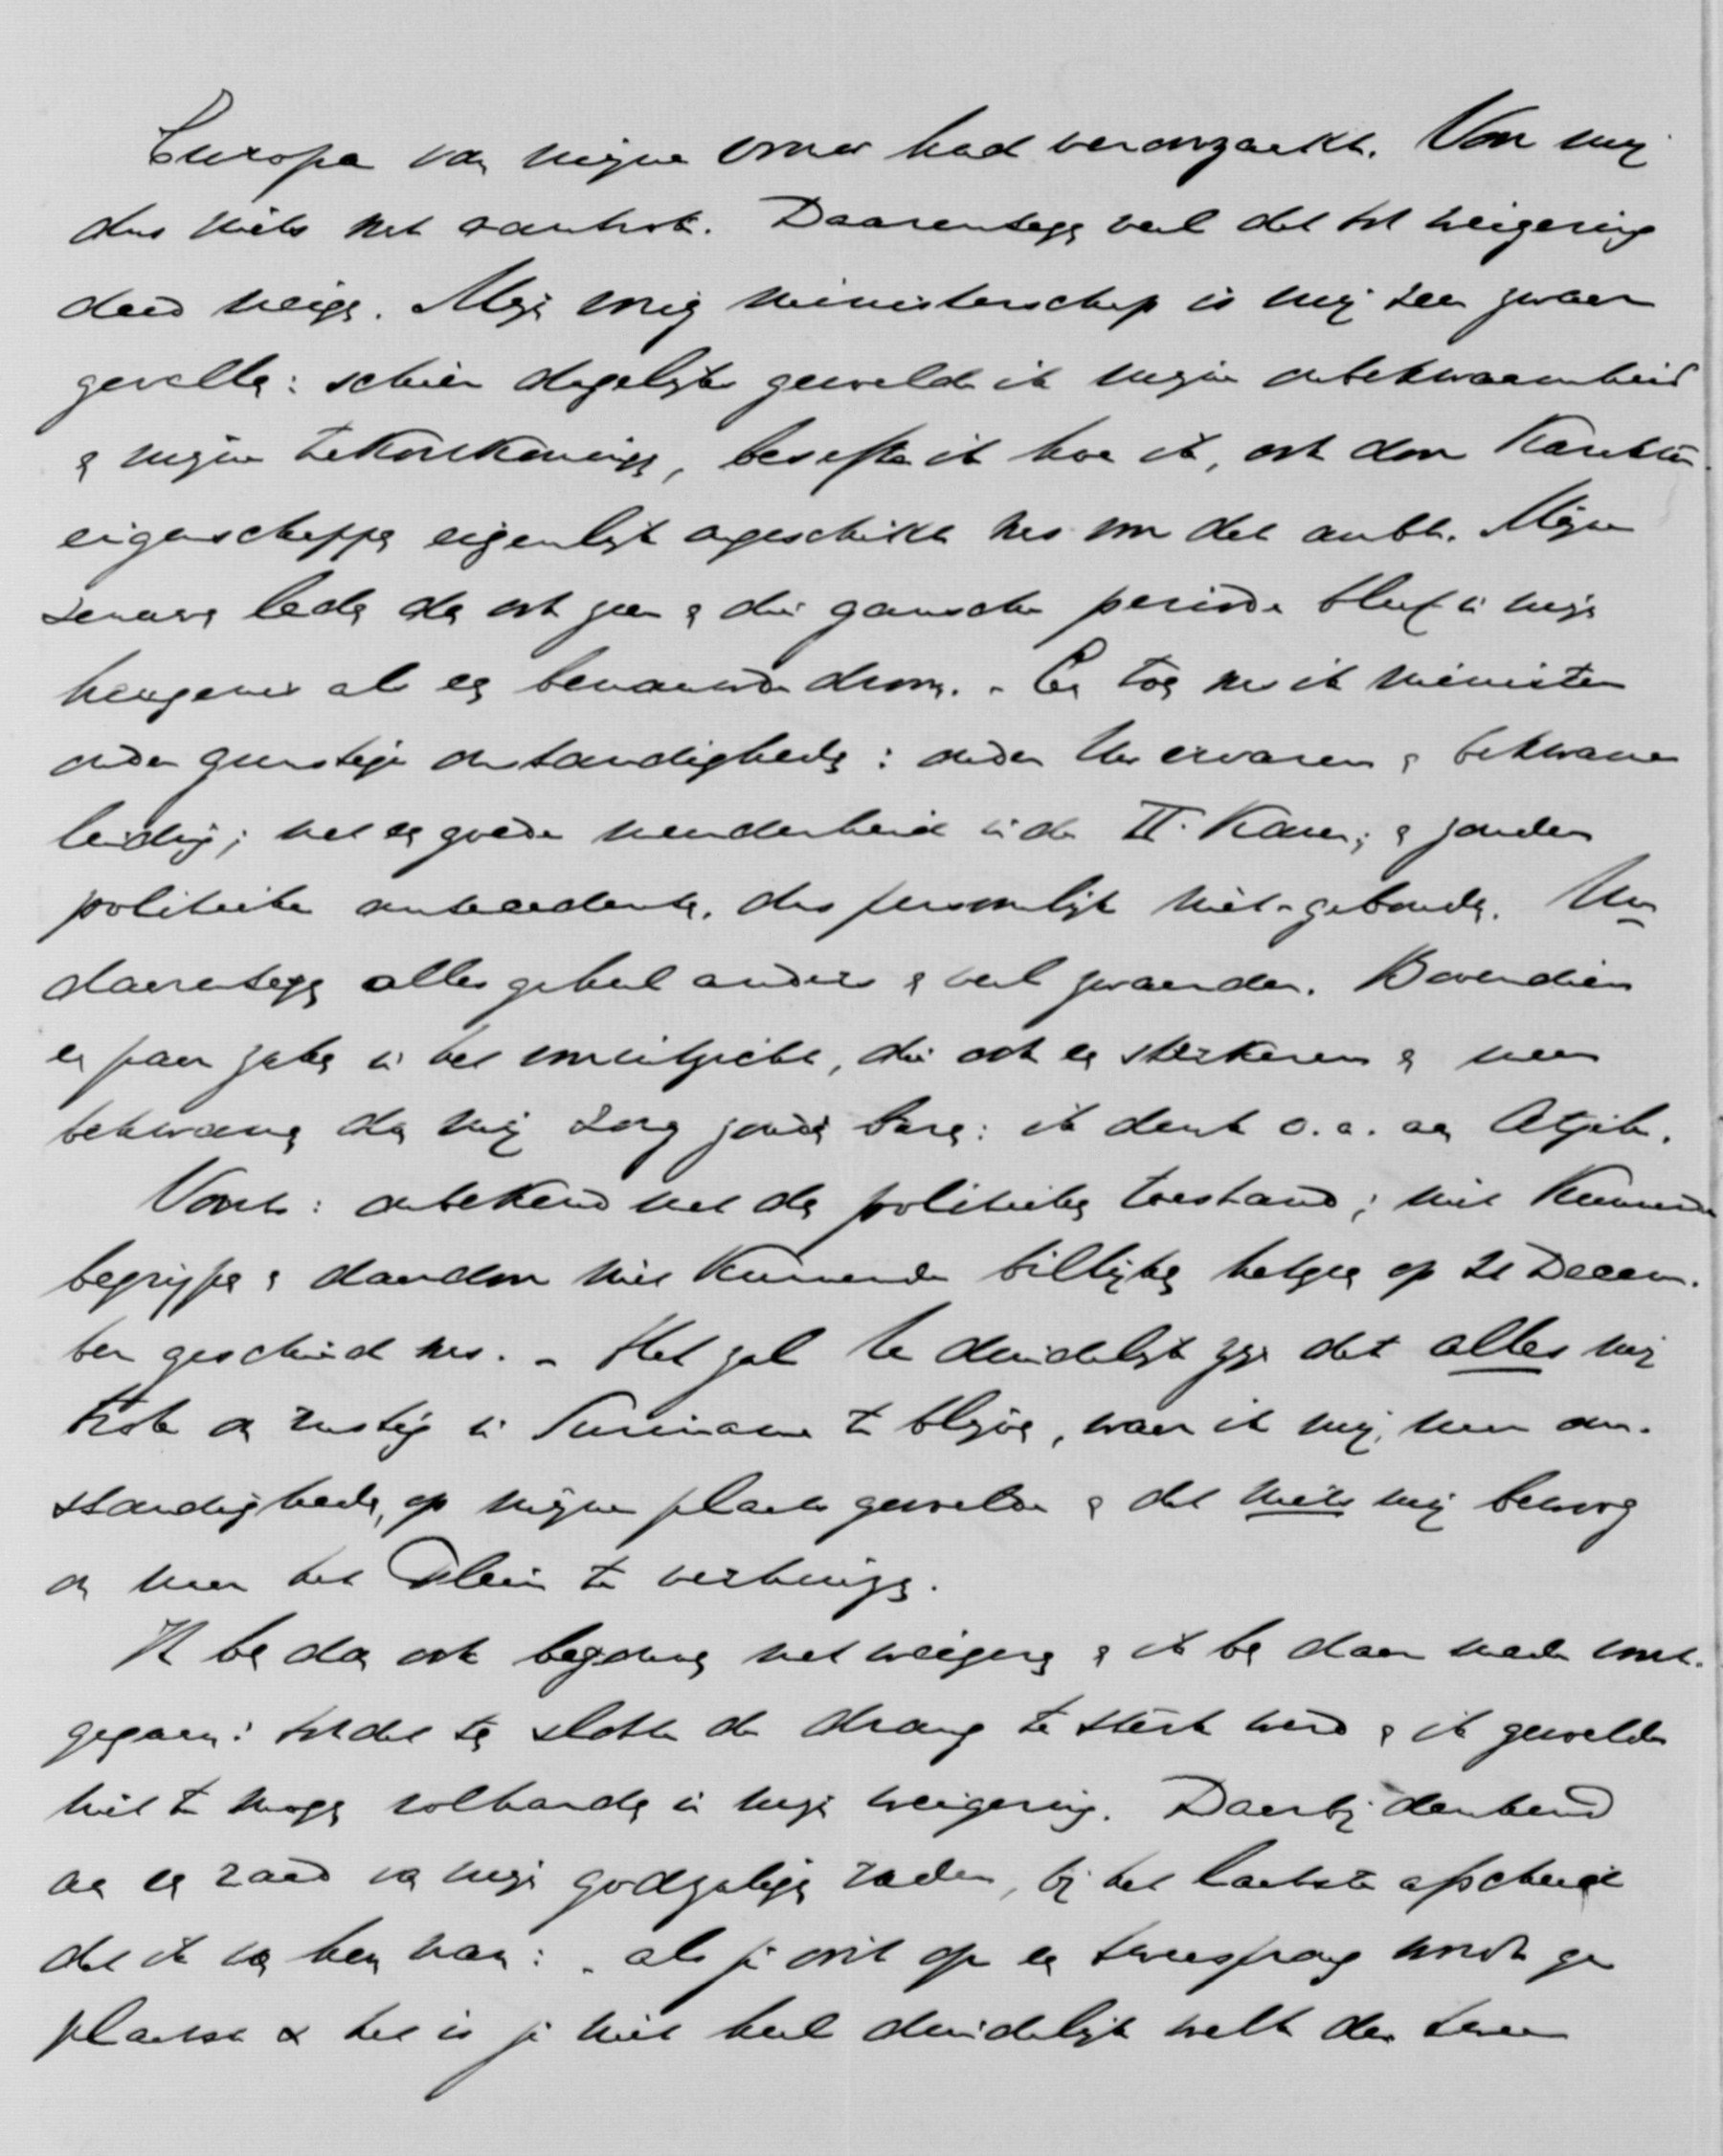 Europa van mijne vrouw had veroorzaakt. Voor mij
dus niets het aantrok. Daarentegen veel dat tot weigering
deed neigen. Mijn vorig ministerschap is mij zeer zwaar
gevallen: schier dagelijks gevoelde ik mijne onbekwaamheid
en mijne tekortkomingen, besefte ik hoe ik, ook door karakter-
eigenschappen eigenlijk ongeschikt was voor dat ambt. Mijne
zenuwen leden dan ook zeer en die gansche periode bleef in mijn
heugenis als een benauwde droom. - En toen was ik minister
onder gunstige omstandigheden: onder Uw ervaren en bekwame
leiding; met een goede meerderheid in de IIe Kamer; en zonder
politieke antecedenten, dus persoonlijk niet-gebonden. Nu
daarentegen alles geheel anders en veel zwaarder. Bovendien
een paar zaken in het vooruitzicht, die ook een sterkeren en meer
bekwamen dan mij zorg zouden baren: ik denk o.a. aan Atjeh.
Voorts: onbekend met den politieken toestand; niet kunnende
begrijpen en daardoor niet kunnende billijken hetgeen op 21 Decem-
ber geschied was. - Het zal Ue duidelijk zijn dat alles mij
trok om rustig in Suriname te blijven, waar ik mij, naar om-
standigheden, op mijne plaats gevoelde en dat niets mij bewoog
om naar het Plein te verhuizen.
Ik ben dan ook begonnen met weigeren en ik ben daar mede voort-
gegaan: totdat ten slotte de drang te sterk werd en ik gevoelde
niet te mogen volharden in mijn weigering. Daarbij denkend
aan een raad van mijn godzaligen vader, bij het laatste afscheid
dat ik van hem nam: "als je ooit op een tweesprong wordt ge-
plaatst en het is je niet heel duidelijk welk der twee